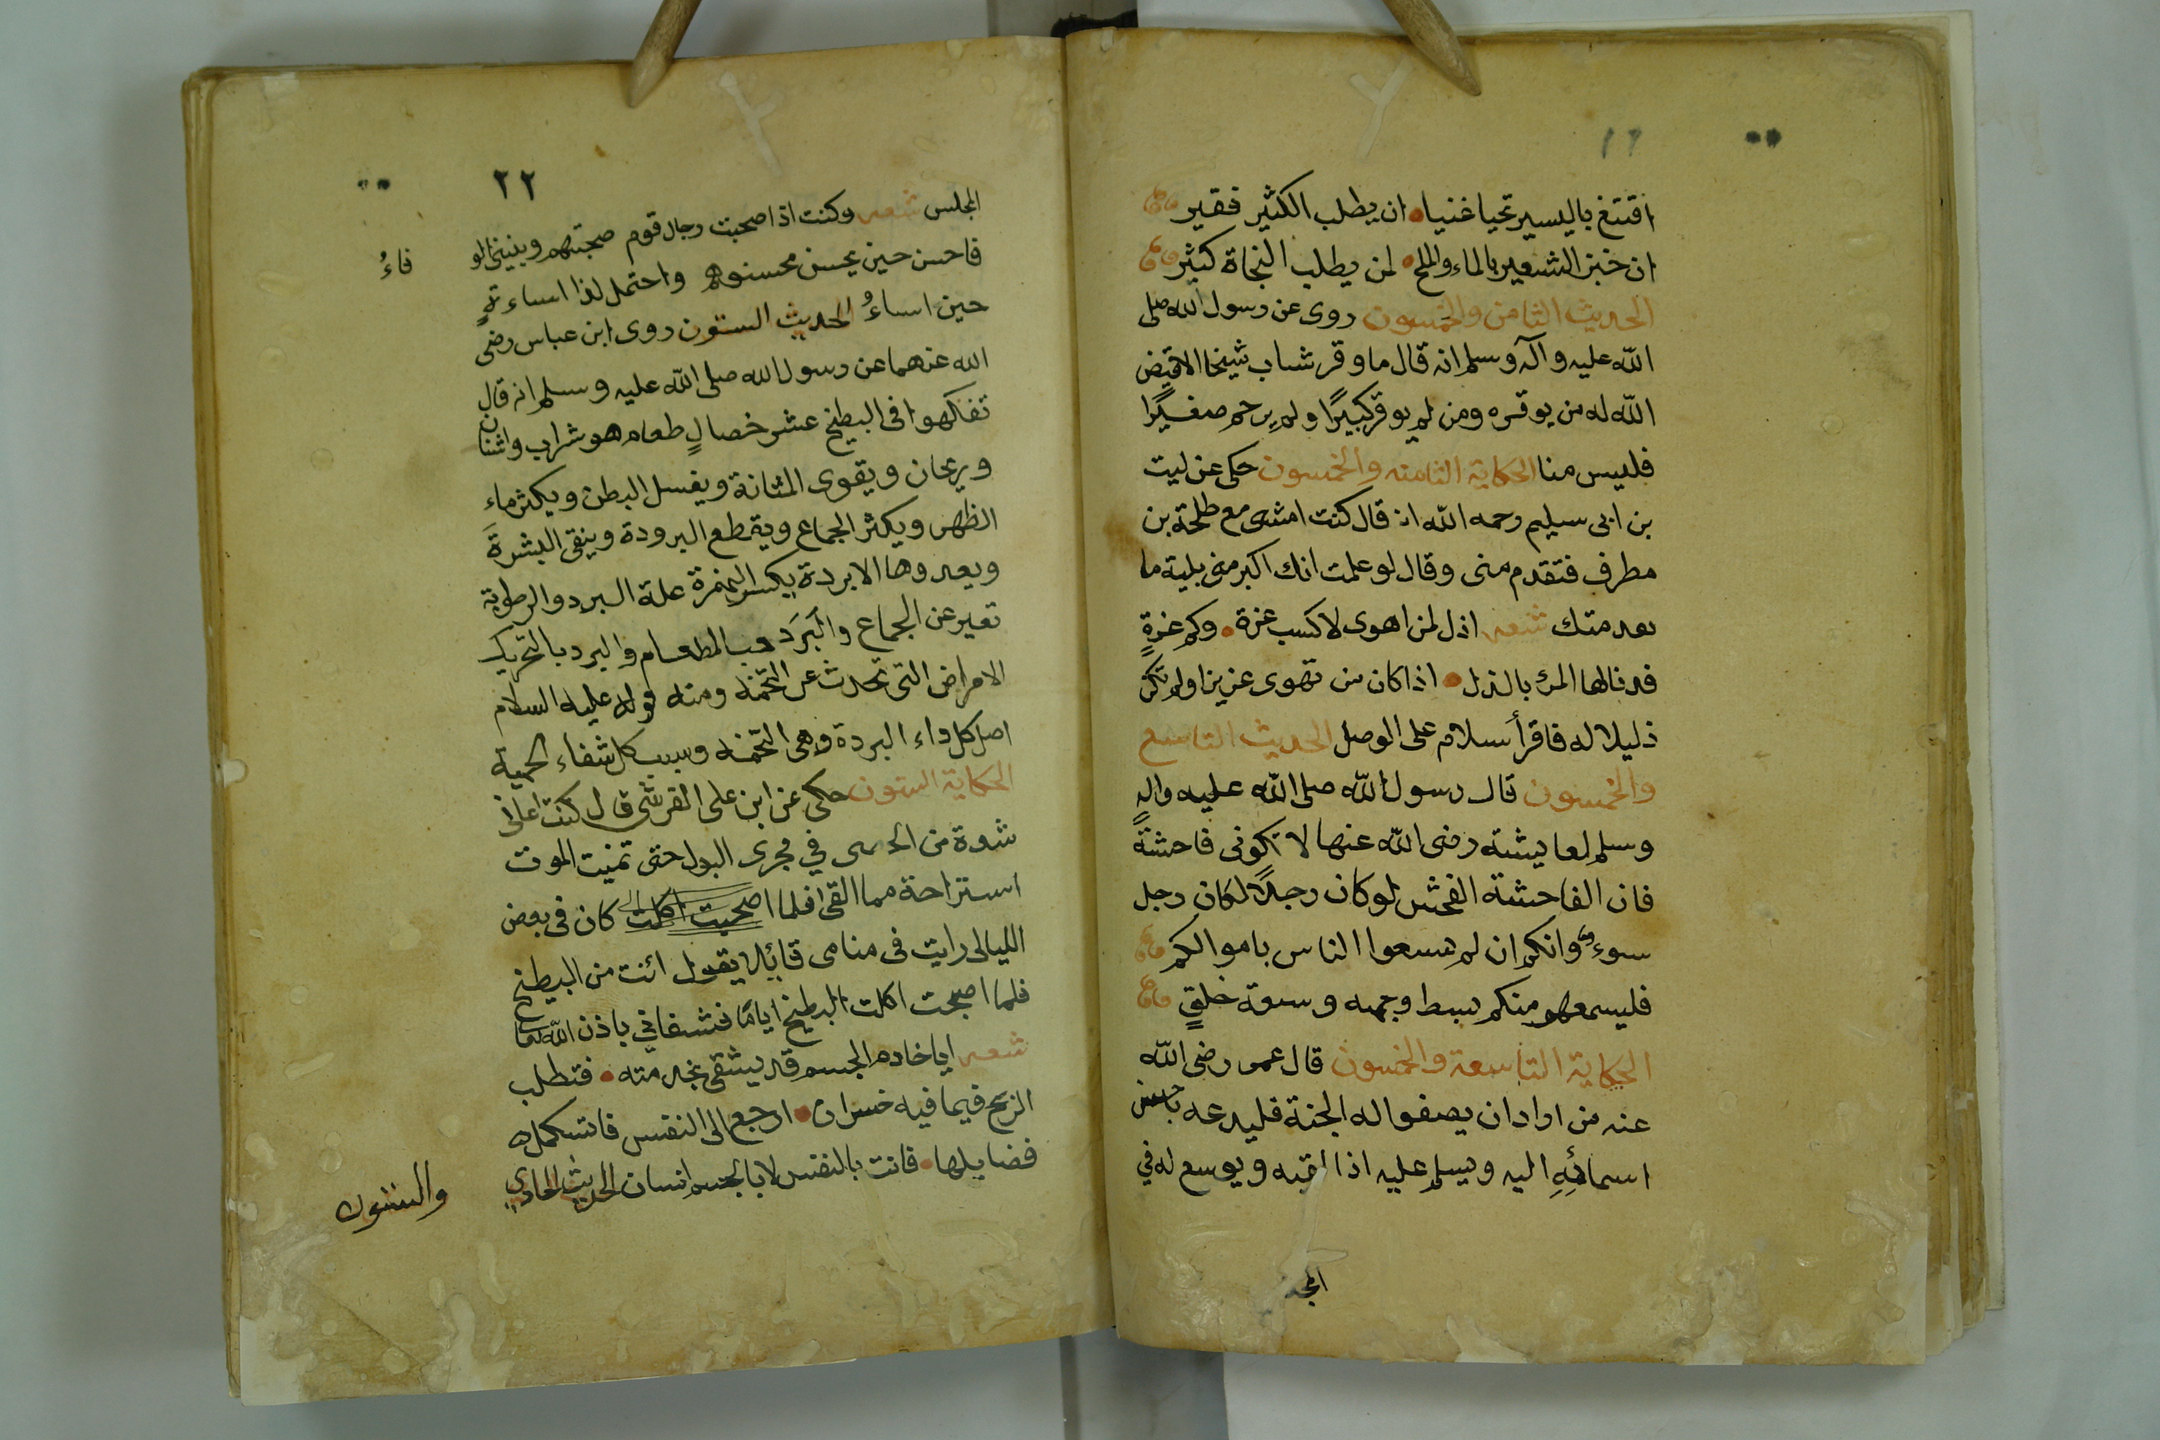 اقتنغ باليسير تحيا غنيا ان يطلب الكثير فقير
ان خبز الشعير بالماء والملح لمن يطلب النجاة كثير
الحديث الثامن والخمسون روى عن رسول الله صلى
الله عليه وآله وسلم انه قال ما وقر شاب شيخا الا قيض
الله له من يوقره ومن لم يوقر كبيرًا ولم يرحم صغيرًا
فليس منا الحكاية الثامنه والخمسون حكى عن ليت
بن ابى سليم رحمه الله انه قال كنت امشى مع طلحة بن
مطرف فتقدم منى وقال لو علمت انك اكبر منى بليلة ما
تقدمتك شعر اذل لمن اهوى لاكسب عزة وكم عزةٍ
قد نالها المرء بالذل اذا كان من تهوى عزيزا ولم تكن
ذليلا له فاقرأ سلام على الوصل الحديث التاسع
والخمسون قال رسول الله صلى الله عليه واله
وسلم لعايشة رضى الله عنها لا تكونى فاحشةً
فان الفاحشة الفحش لو كان رجلاً لكان رجل
سوء وانكم ان لم تسعوا الناس باموالكم
فليسعهم منكم بسط وجهه وسعة خلقٍ
الحكاية التاسعة والخمسون قال عمر رضى الله
عنه من اراد ان يصفوا له الجنة فليدعه باحسن
اسمائهِ اليه ويسلم عليه اذا لقيه ويوسع له في
المجلس
٢٢
المجلس شعر وكنت اذا صحبت رجال قوم صحبتهم وبنيتى الو فاءُ
فاحسن حين يحسن محسنوهم واحتمل لذا اساءتهم
حين اساءُ الحديث الستون روى ابن عباس رضى
الله عنهما عن رسول الله صلى الله عليه وسلم انه قال
تفكهوا فى البطيخ عشر خصالٍ طعام هو شراب واشنان
وريحان ويقوى المثانة ويغسل البطن ويكثر ماء
الظهر ويكثر الجماع ويقطع البرودة وينقى البشرةَ
ويعدوها الابردة بكسر الهمزة علة البرد والرطوبة
تغير عن الجماع والبَرَد حب المطعام والبرد بالتحريك
الامراض التى تحدث عن التخمه ومنه قوله عليه السلام
اصل كل داء البردة وهى التخمه وسبب كل شفاء الحمية
الحكاية الستون حكى عن ابن على القرشى قال كنت اعانى
شدة من الحصى في مجرى البول حتى تمنيت الموت
استراحة مما القى فلما اصحبت اكلت كان فى بعض
الليالى رايت فى منامى قائلا يقول ائت من البطيخ
فلما اصبحت اكلت البطيخ اياما فشفاني باذن الله تعا
شعر ايا خادم الجسم قد يشقى بخدمته فتطلب
الربح فيما فيه خسران ارجع الى النفس فاستكمل
فضايلها فانت بالنفس لا بالجسم انسان الحديث الحادي
والستون